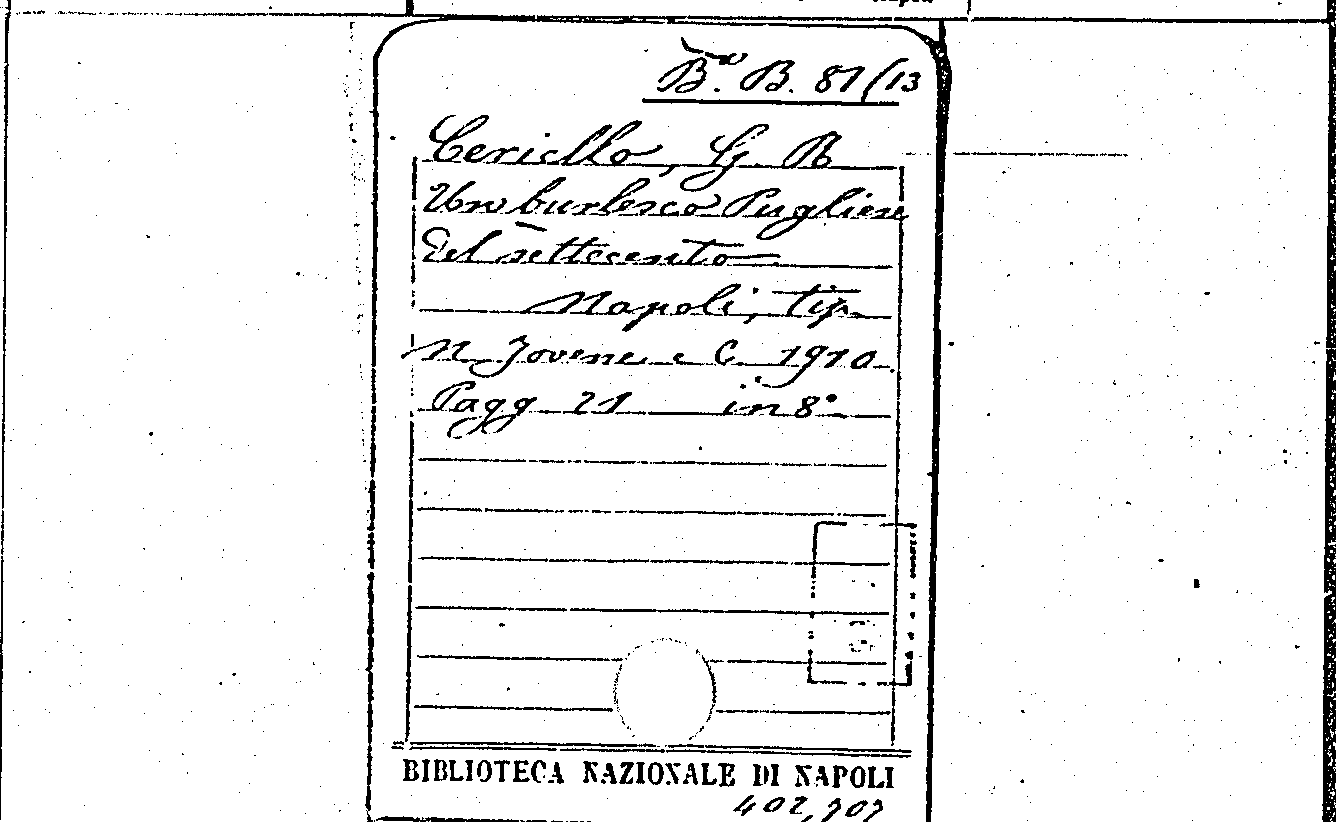 Bta B. 81/13
Ceriello, G. B
Un burlesco Pugliese
del settecento
Napoli, tip.
N. Jovene e C. 1910.
Pagg 21 in 8°
BIBLIOTECA NAZIONALE DI NAPOLI
402,707